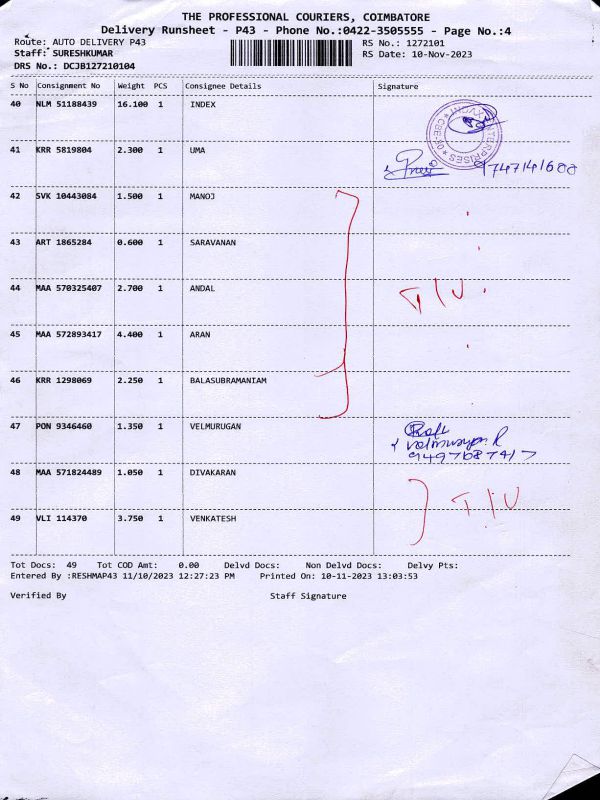 THE PROFESSIONAL COURIERS, COIMBATORE
Delivery Runsheet - P43 - Phone No.:0422-3505555 - Page No.:4
Route: AUTO DELIVERY P43 RS No.: 1272101
Staff: SURESHKUMAR RS Date: 10-Nov-2023
DRS No.: DCJB127210104
S No Consignment No Weight PCS Consignee Details Signature
40 NLM 51188439 16.100 1 INDEX
ENTERPRISES
41 KRR 5819804 2.300 1 UMA
9747141688
42 SVK 10443084 1.500 1 MANOJ
43 ART 1865284 0.600 1 SARAVANAN
44 MAA 570325407 2.700 1 ANDAL
T/U
45 MAA 572893417 4.400 1 ARAN
46 KRR 1298069 2.250 1 BALASUBRAMANIAM
47 PON 9346460 1.350 1 VELMURUGAN
9497687417
48 MAA 571824489 1.050 1 DIVAKARAN
T/U
49 VLI 114370 3.750 1 VENKATESH
Tot Docs: 49 Tot COD Amt: 0.00 Delvd Docs: Non Delvd Docs: Delvy Pts:
Entered By :RESHMAP43 11/10/2023 12:27:23 PM Printed On: 10-11-2023 13:03:53
Verified By Staff Signature